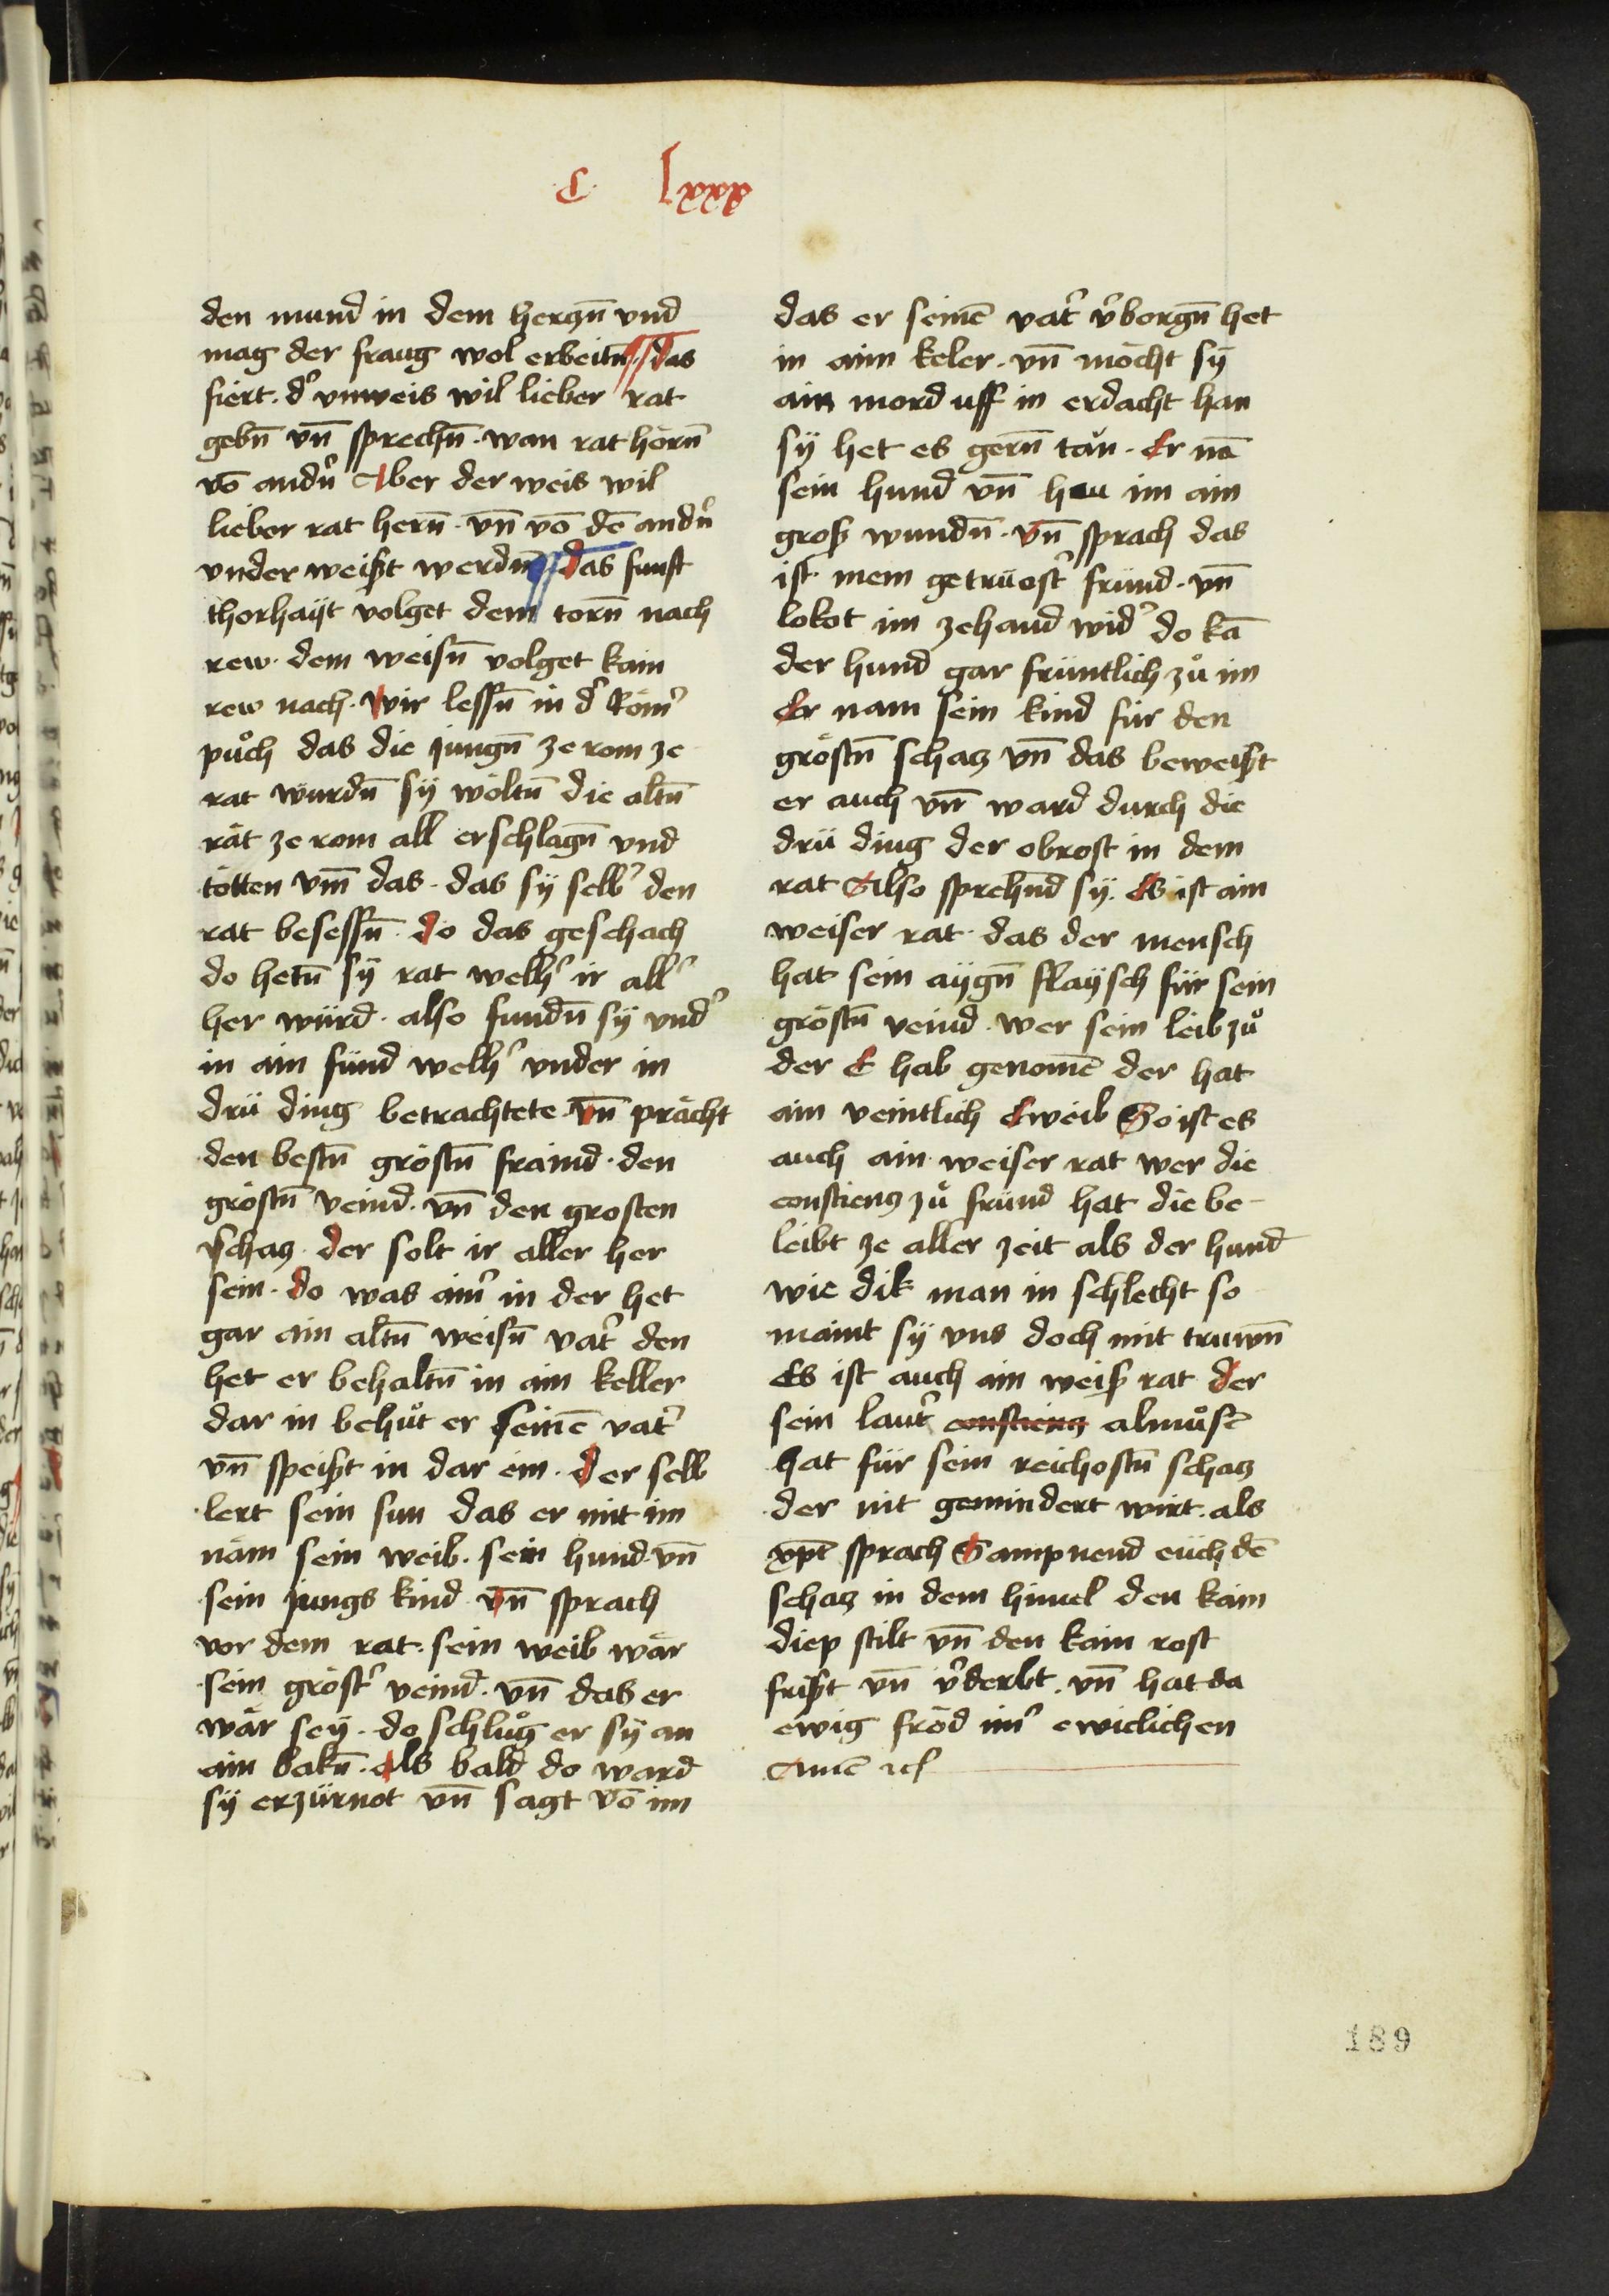 C lxxx
den mund in dem herczn̄ vnd
mag der fraug wol erbeitn̄ das
fiert. dˀ vnweis wil lieber rat
gebn̄ vn̄ sprechn̄. wan rat hörn̄
vō andˀn Aber der weis wil
lieber rat hern̄. vn̄ vō dē andˀn
vnder weißt werdn̄ das funft
thorhaÿt volget dem torn̄ nach
rew. dem weisn̄ volget kain
rew nach. wir lessn̄ in dˀ Römˀ
půch das die jungn̄ ze rom ze
rat wurdn̄ sÿ wöltn̄ die altn̄
rät ze rom all erschlagn̄ vnd
tötten vm̄ das. das sÿ selbˀ den
rat besessn̄. do das geschach
do hetn̄ sÿ rat welhˀ ir allˀ
her würd. also fundn̄ sÿ vndˀ
in ain fünd welhˀ vnder in
drü ding betrachtete. vn̄ prächt
den bestn̄ gröstn̄ fraind. den
gröstn̄ veind. vn̄ den grosten
schacz. der solt ir aller her
sein. do was ainˀ in der het
gar ain altn̄ weisn̄ vatˀ den
het er behaltn̄ in ain keller
dar in behůt er seinē vatˀ
vn̄ speißt in dar ein. der selb
lert sein sun das er mit im
näm sein weib. sein hund. vn̄
sein jungs kind vn̄ sprach
vor dem rat. sein weib wär
sein gröstˀ veind. vn̄ das er
wär seÿ. do schlůg er sÿ an
ain bakn̄. als bald do ward
sÿ erzürnot vn̄ sagt vō im
das er seinē vatˀ vˀborgn̄ het
in aim keler. vn̄ möcht sÿ
ain mord uff in erdacht han
sÿ het es gern̄ tän. Er nā
sein hund vn̄ hau im ain
groß wundn̄. vn̄ sprach das
ist mein getrüostˀ fründ. vn̄
lokot im zehand widˀ do kā
der hund gar früntlich zů im
Er nam sein kind für den
gröstn̄ schacz vn̄ das beweißt
er auch vn̄ ward durch die
drü ding der obrost in dem
rat Also sprehnd sÿ. Es ist ain
weiser rat. das der mensch
hat sein aÿgn̄ flaÿsch für sein
gröstn̄ veind. wer sein leib zů
der E hab genomē der hat
ain veintlich Eweib So ist es
auch ain weiser rat wer die
consciencz zů fründ hat die be-
leibt ze aller zeit als der hund
wie dik man in schlecht so
maint sÿ vns doch mit truwn̄
Es ist auch ain weiß rat der
sein lautˀ conscienz almůsē
hat für sein reichostn̄ schacz
der nit gemindert wirt. als
xp̄t sprach Sampnend eüch dē
schacz in dem himel den kain
diep stilt vn̄ den kain rost
frißt vn̄ vˀderbt. vn̄ hat da
ewig fröd imˀ ewiclichen
Amē
189